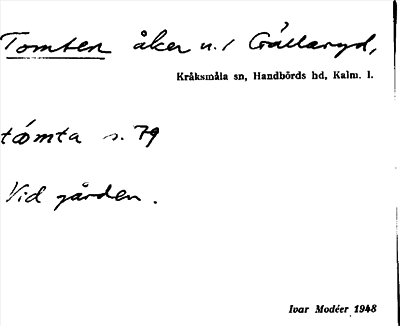 Tomten åker u. / Gållaryd,
Kråksmåla sn, Handbörds hd, Kalm. l.
tómta s. 79
Vid gården.
Ivar Modéer 1948